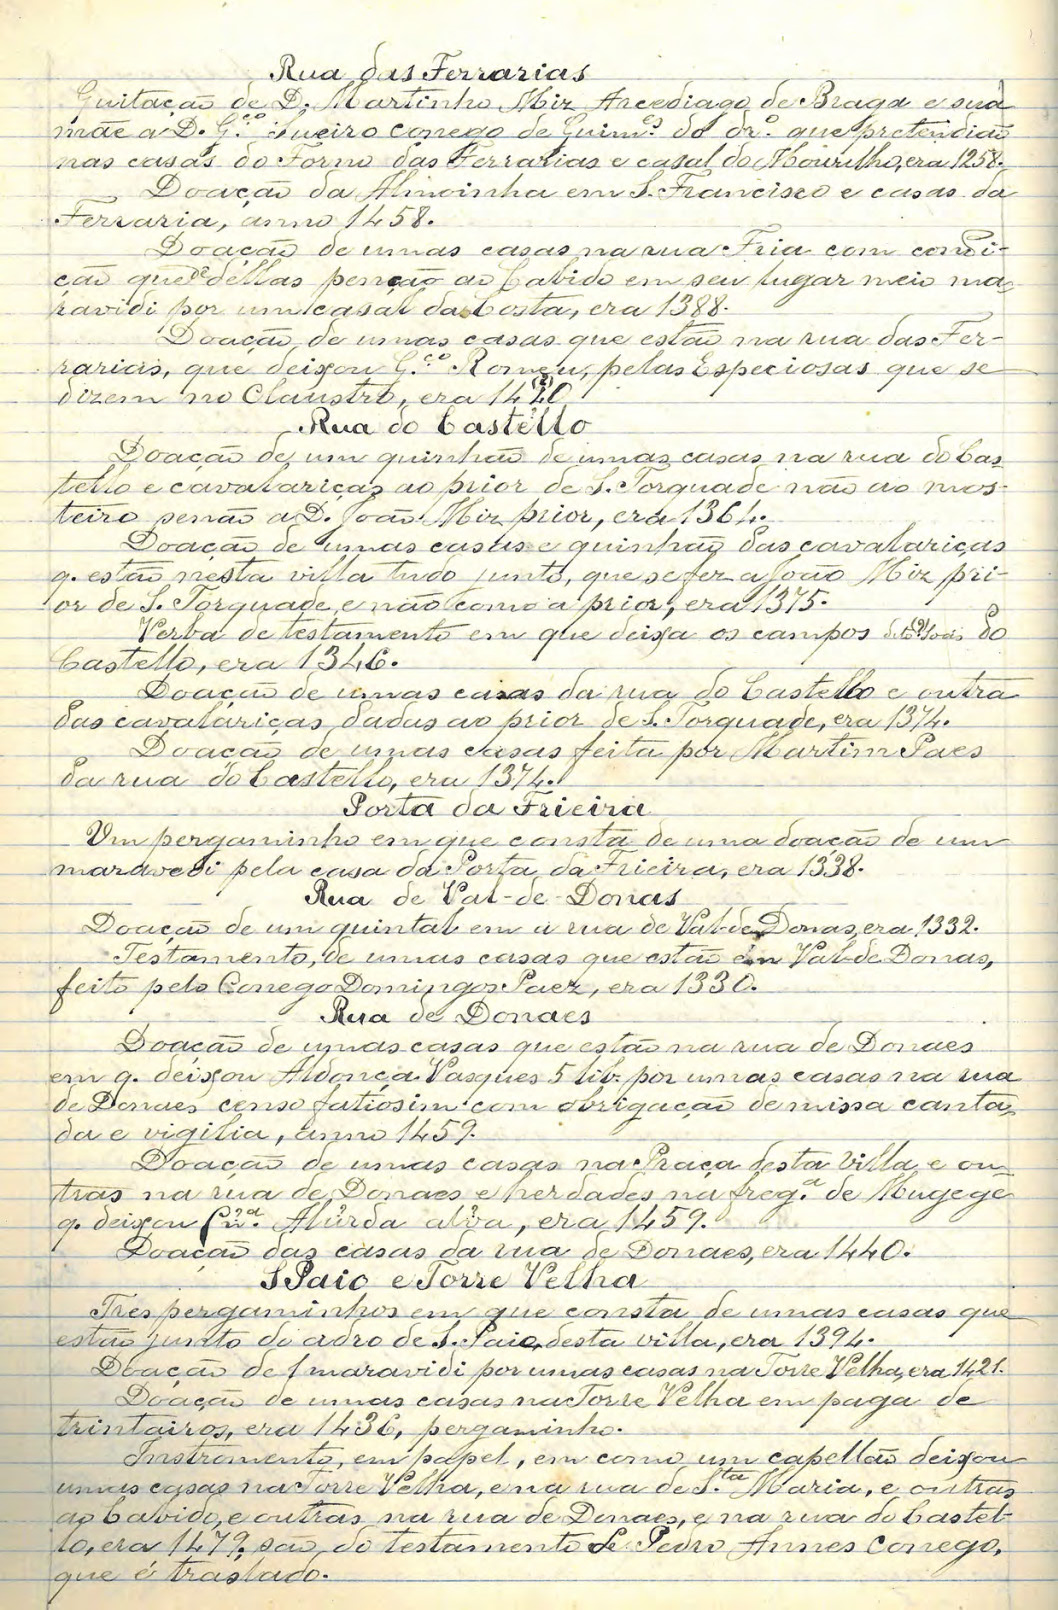 Rua das Ferrarias
Quitação de D. Martinho Miz Arcediago de Braga e sua
mãe a D. G.ço Sueiro conego de Guim.es do dr.o que pretendião
nas casas do Forno das Ferrarias e casal do Mourilho, era 1258.
Doação da Almoinha em S. Francisco e casas da
Ferraria, anno 1458.
Doação de umas casas na rua Fria com condi-
ção que de dellas penção ao Cabido em seu lugar meio ma-
ravidi por um casal da Costa, era 1388.
Doação de umas casas que estão na rua das Fer-
rarias, que deixou G.ço Romeu, pelas Especiosas que se
dizem no Claustro, era 1420 (2)
Rua do Castello
Doação de um quinhão de umas casas na rua do Cas-
tello e cavalariças ao prior de S. Torquade não ao mos-
teiro senão a D. João Miz prior, era 1364.
Doação de umas casas e quinhão das cavalariças
q. estão nesta villa tudo junto, que se fez a João Miz pri-
or de S. Torquade, e não como a prior, era 1375.
Verba de testamento em que deixa os campos do
Castello, era 1346.
Doação de umas casas da rua do Castello e outra
das cavalariças dadas ao prior de S. Torquade, era 1374.
Doação de umas casas feita por Martim Paes
da rua do Castello, era 1374.
Porta da Frieira
Um pergaminho em que consta de uma doação de um
maravedi pela casa da Porta da Frieira, era 1338.
Rua de Val-de-Donas
Doação de um quintal em a rua de Val-de-Donas, era 1332.
Testamento, de umas casas que estão em Val-de-Donas,
feito pelo Conego Domingos Paez, era 1330.
Rua de Donaes
Doação de umas casas que estão na rua de Donaes
em q. deixou Aldonça Vasques 5 lib. por umas casas na rua
de Donaes censo fatiosim com obrigação de missa canta-
da e vigilia, anno 1459.
Doação de umas casas na Praça desta villa e ou-
tras na rua de Donaes e herdades na freg.a de Mugege
q. deixou era 1459.
Doação das casas da rua de Donaes, era 1440.
S Paio e Torre Velha
Tres pergaminhos em que consta de umas casas que
estão junto do adro de S. Paio, desta villa, era 1394.
Doação de 1 maravidi por umas casas na Torre Velha, era 1421.
Doação de umas casas na Torre Velha em paga de
trintairos, era 1436, pergaminho.
Instromento, em papel, em como um capellão deixou
umas casas na Torre Velha, e na rua de S.ta Maria, e outras
ao Cabido, e outras na rua de Donaes, e na rua do Castel-
lo, era 1479, são do testamento de Pedro Annes conego,
que é traslado.